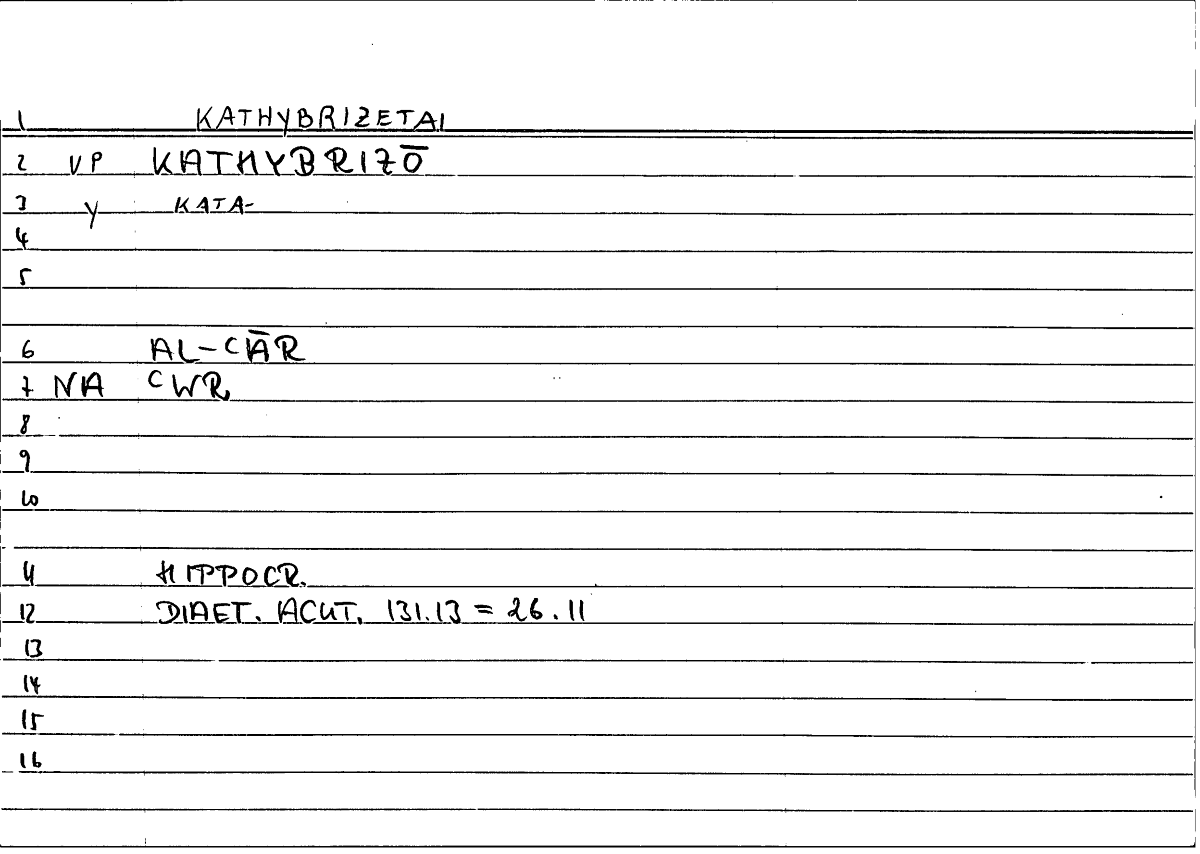 1 KATHYBRIZETAI
2 VP KATHYBRIZŌ
3 Y KATA-
4
5
6 AL-ʿĀR
7 NA ʿWR
8
9
10
11 HIPPOCR.
12 DIAET. ACUT. 131.13 = 26.11
13
14
15
16